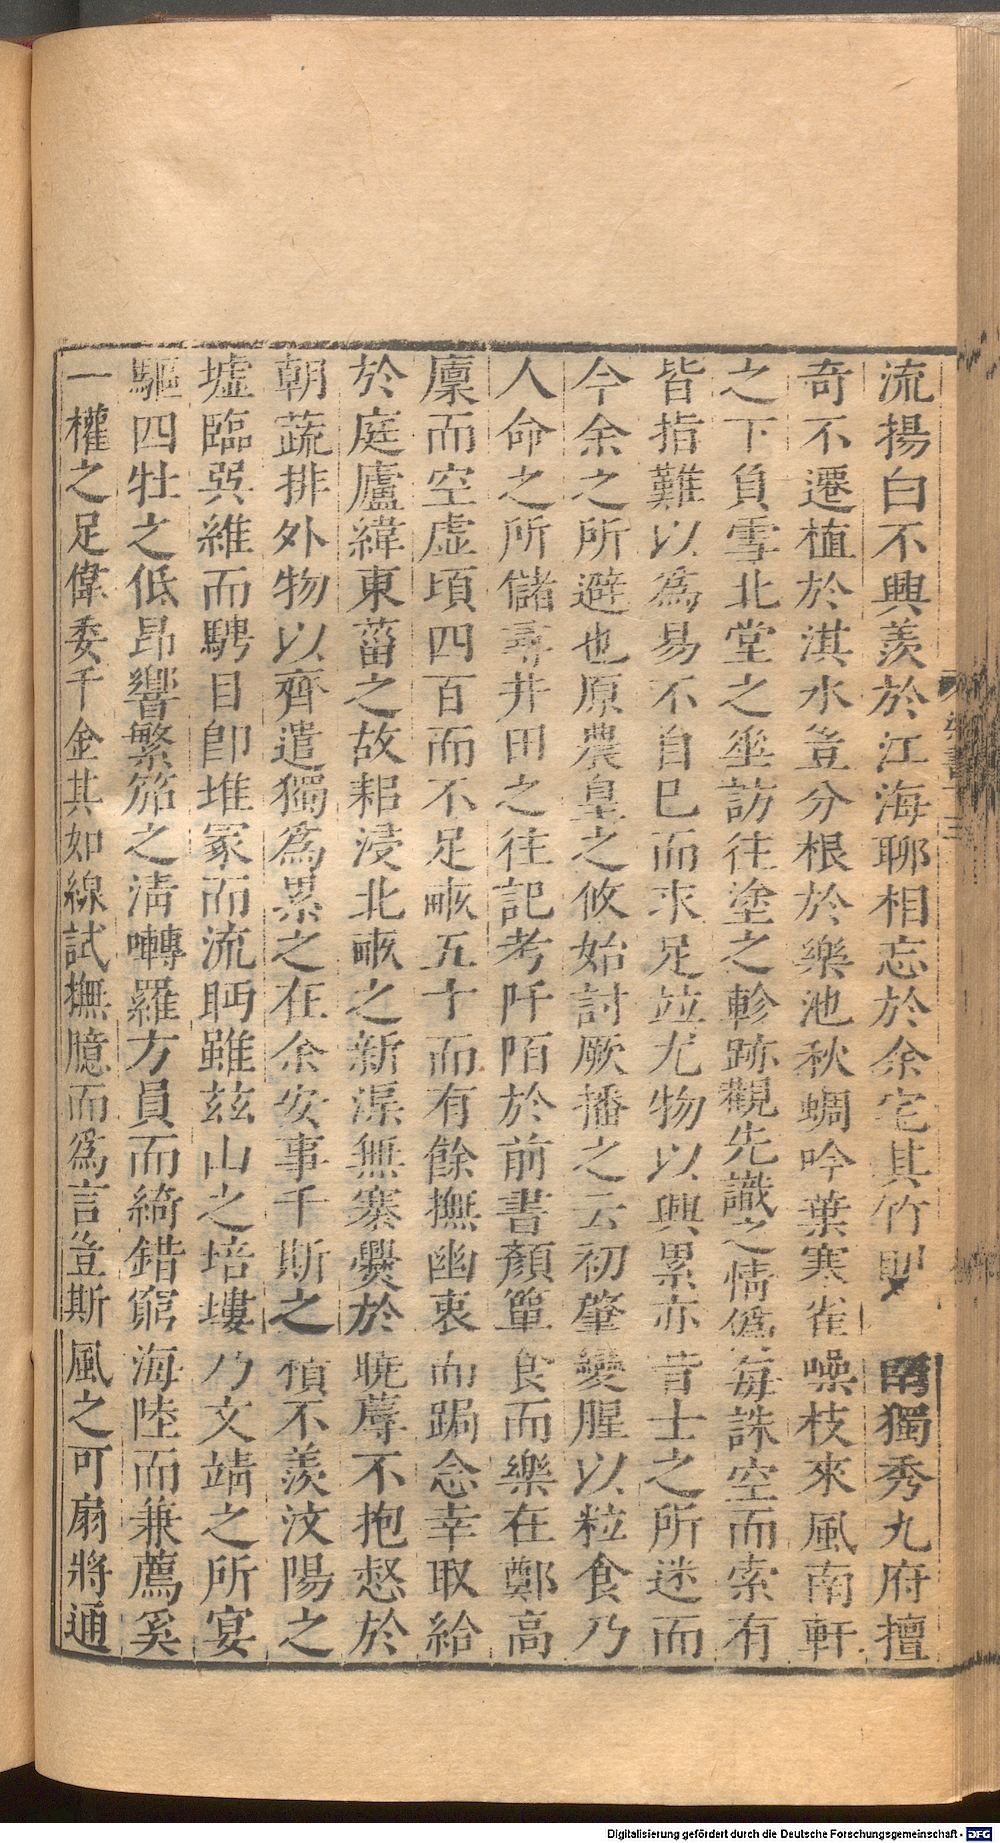 流揚白不興羨於江海聊相忘於余宅其竹則 獨秀九府擅
奇不遷植於淇水豈分根於樂池秋蜩吟葉寒雀噪枝來風南軒
之下負雪北堂之垂訪往塗之軫跡觀先識之情僞每誅空而索有
皆指難以爲易不自已而求足竝尤物以興累亦昔士之所迷而
今余之所避也原農皇之攸始討厥播之云初肇變腥以粒食乃
人命之所儲尋井田之往記考阡陌於前書顏簞食而樂在鄭高
廩而空虛頃四百而不足畝五十而有餘撫幽衷而跼念幸取給
於庭廬緯東菑之故耜浸北畝之新渠無褰爨於曉蓐不抱惄於
朝蔬排外物以齊遣獨爲累之在余安事千斯之積不羨汶陽之
墟臨巽維而騁目卽堆冢而流眄雖茲山之培塿乃文靖之所宴
驅四牡之低昂響繁笳之淸囀羅方員而綺錯窮海陸而兼薦奚
一權之足偉委千金其如線試撫臆而爲言豈斯風之可扇將通
Digitalisierung gefördert durch die Deutsche Forschungsgemeinschaft - DFG